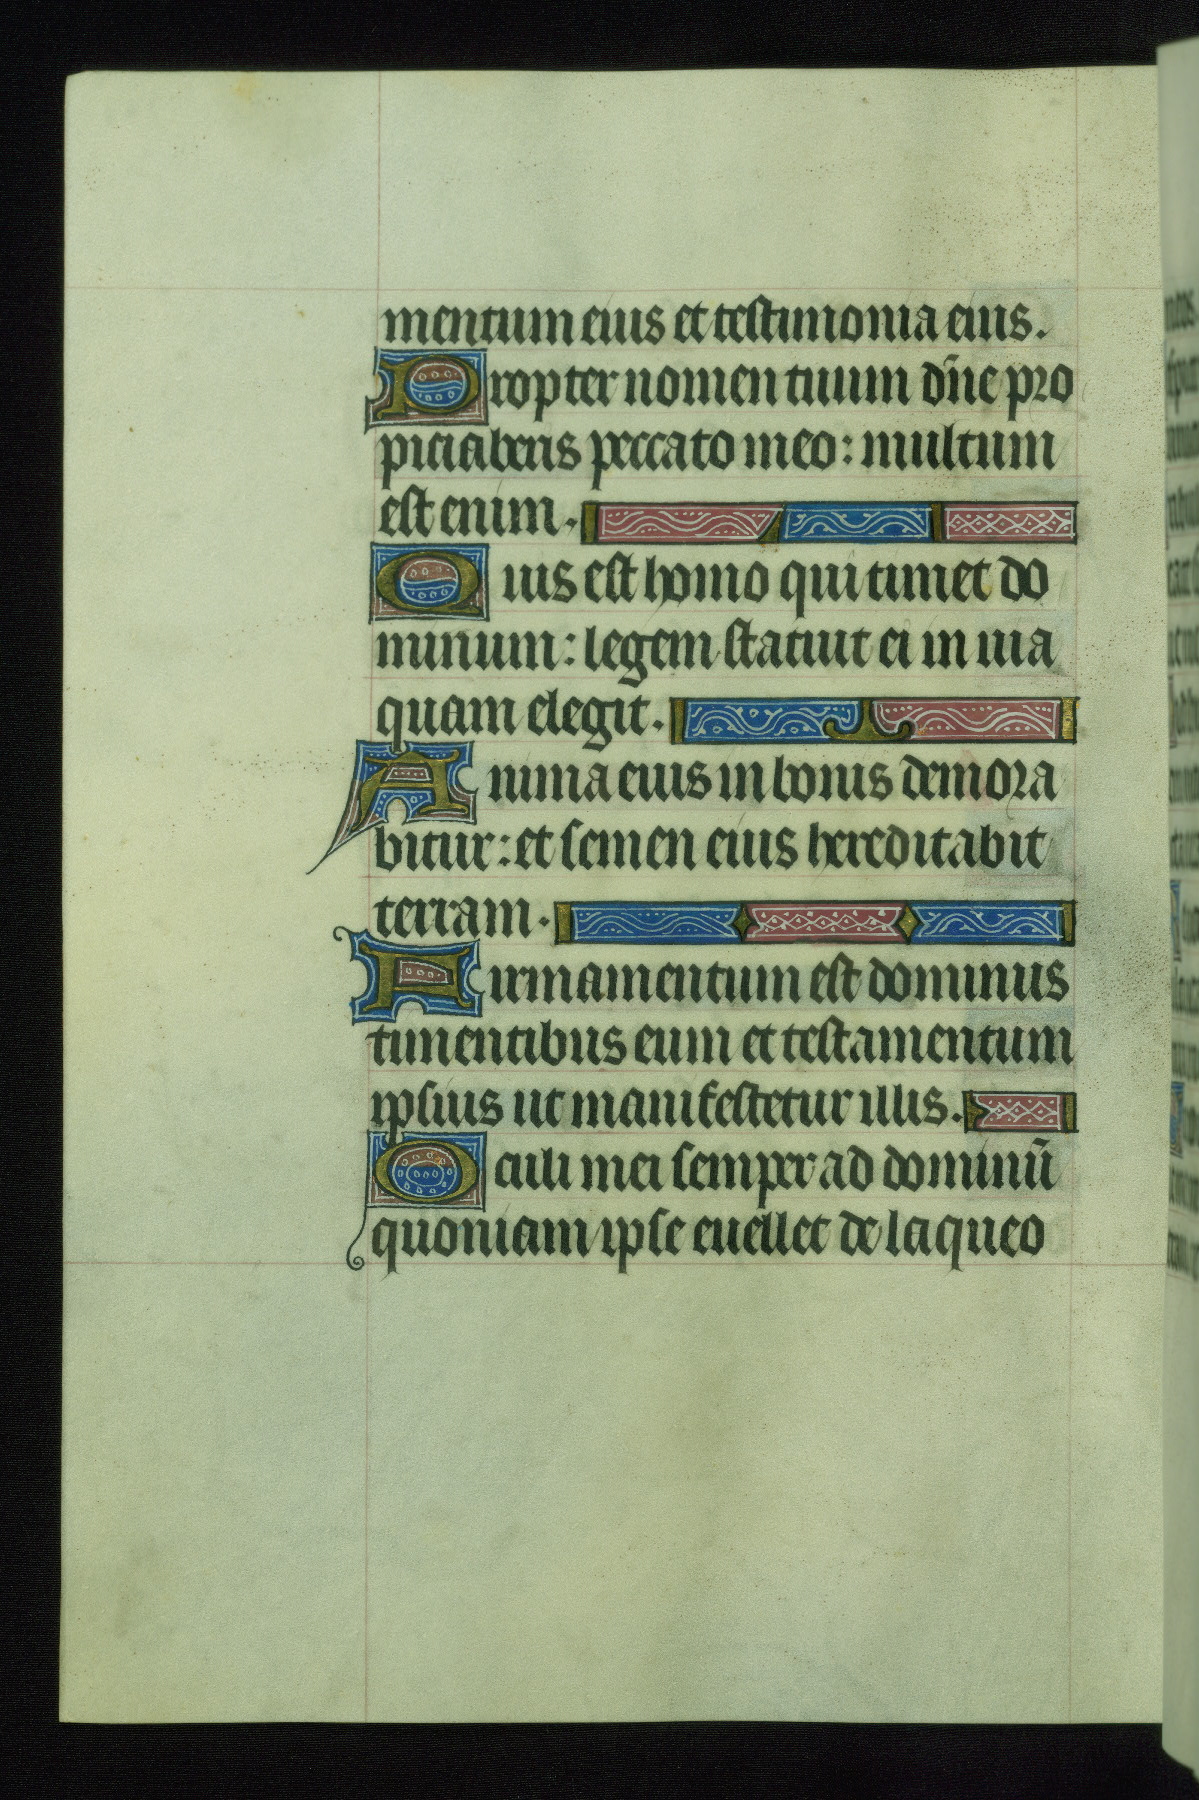 mentum eius et testimonia eius.
Propter nomen tuum dn̄e pro
piciaberis peccato meo: multum
est enim.
Quis est homo qui timet do
minum: legem statuit ei in uia
quam elegit.
Anima eius in bonis demora
bitur: et semen eius hereditabit
terram.
Firmamentum est dominus
timentibus eum et testamentum
ipsius ut manifestetur illis.
Oculi mei semper ad dominū
quoniam ipse euellet de laqueo